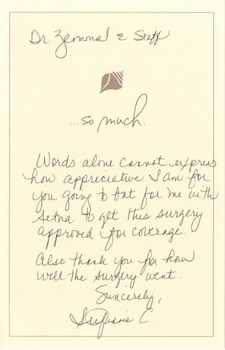 Dr Zemmel & Staff
...so much.
Words alone cannot express
how appreciative I am for
you going to bat for me with
Aetna to get this surgery
approved for coverage.
Also thank you for how
well the surgery went.
Sincerely,
Stefanie C